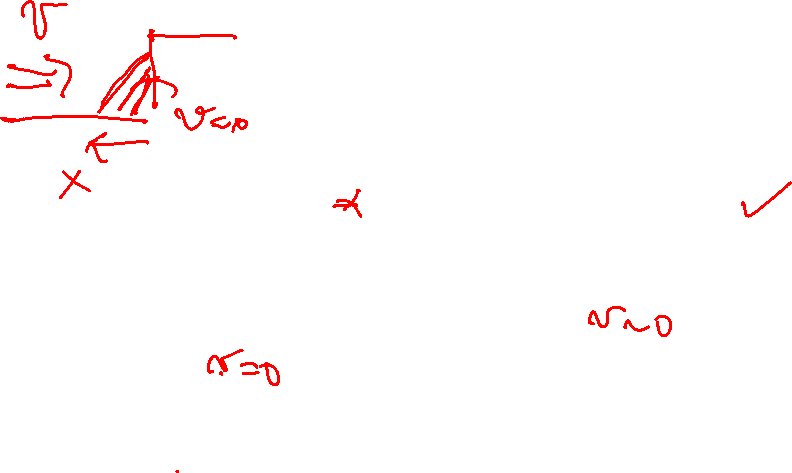 v
v=0
x
v~0
v=0